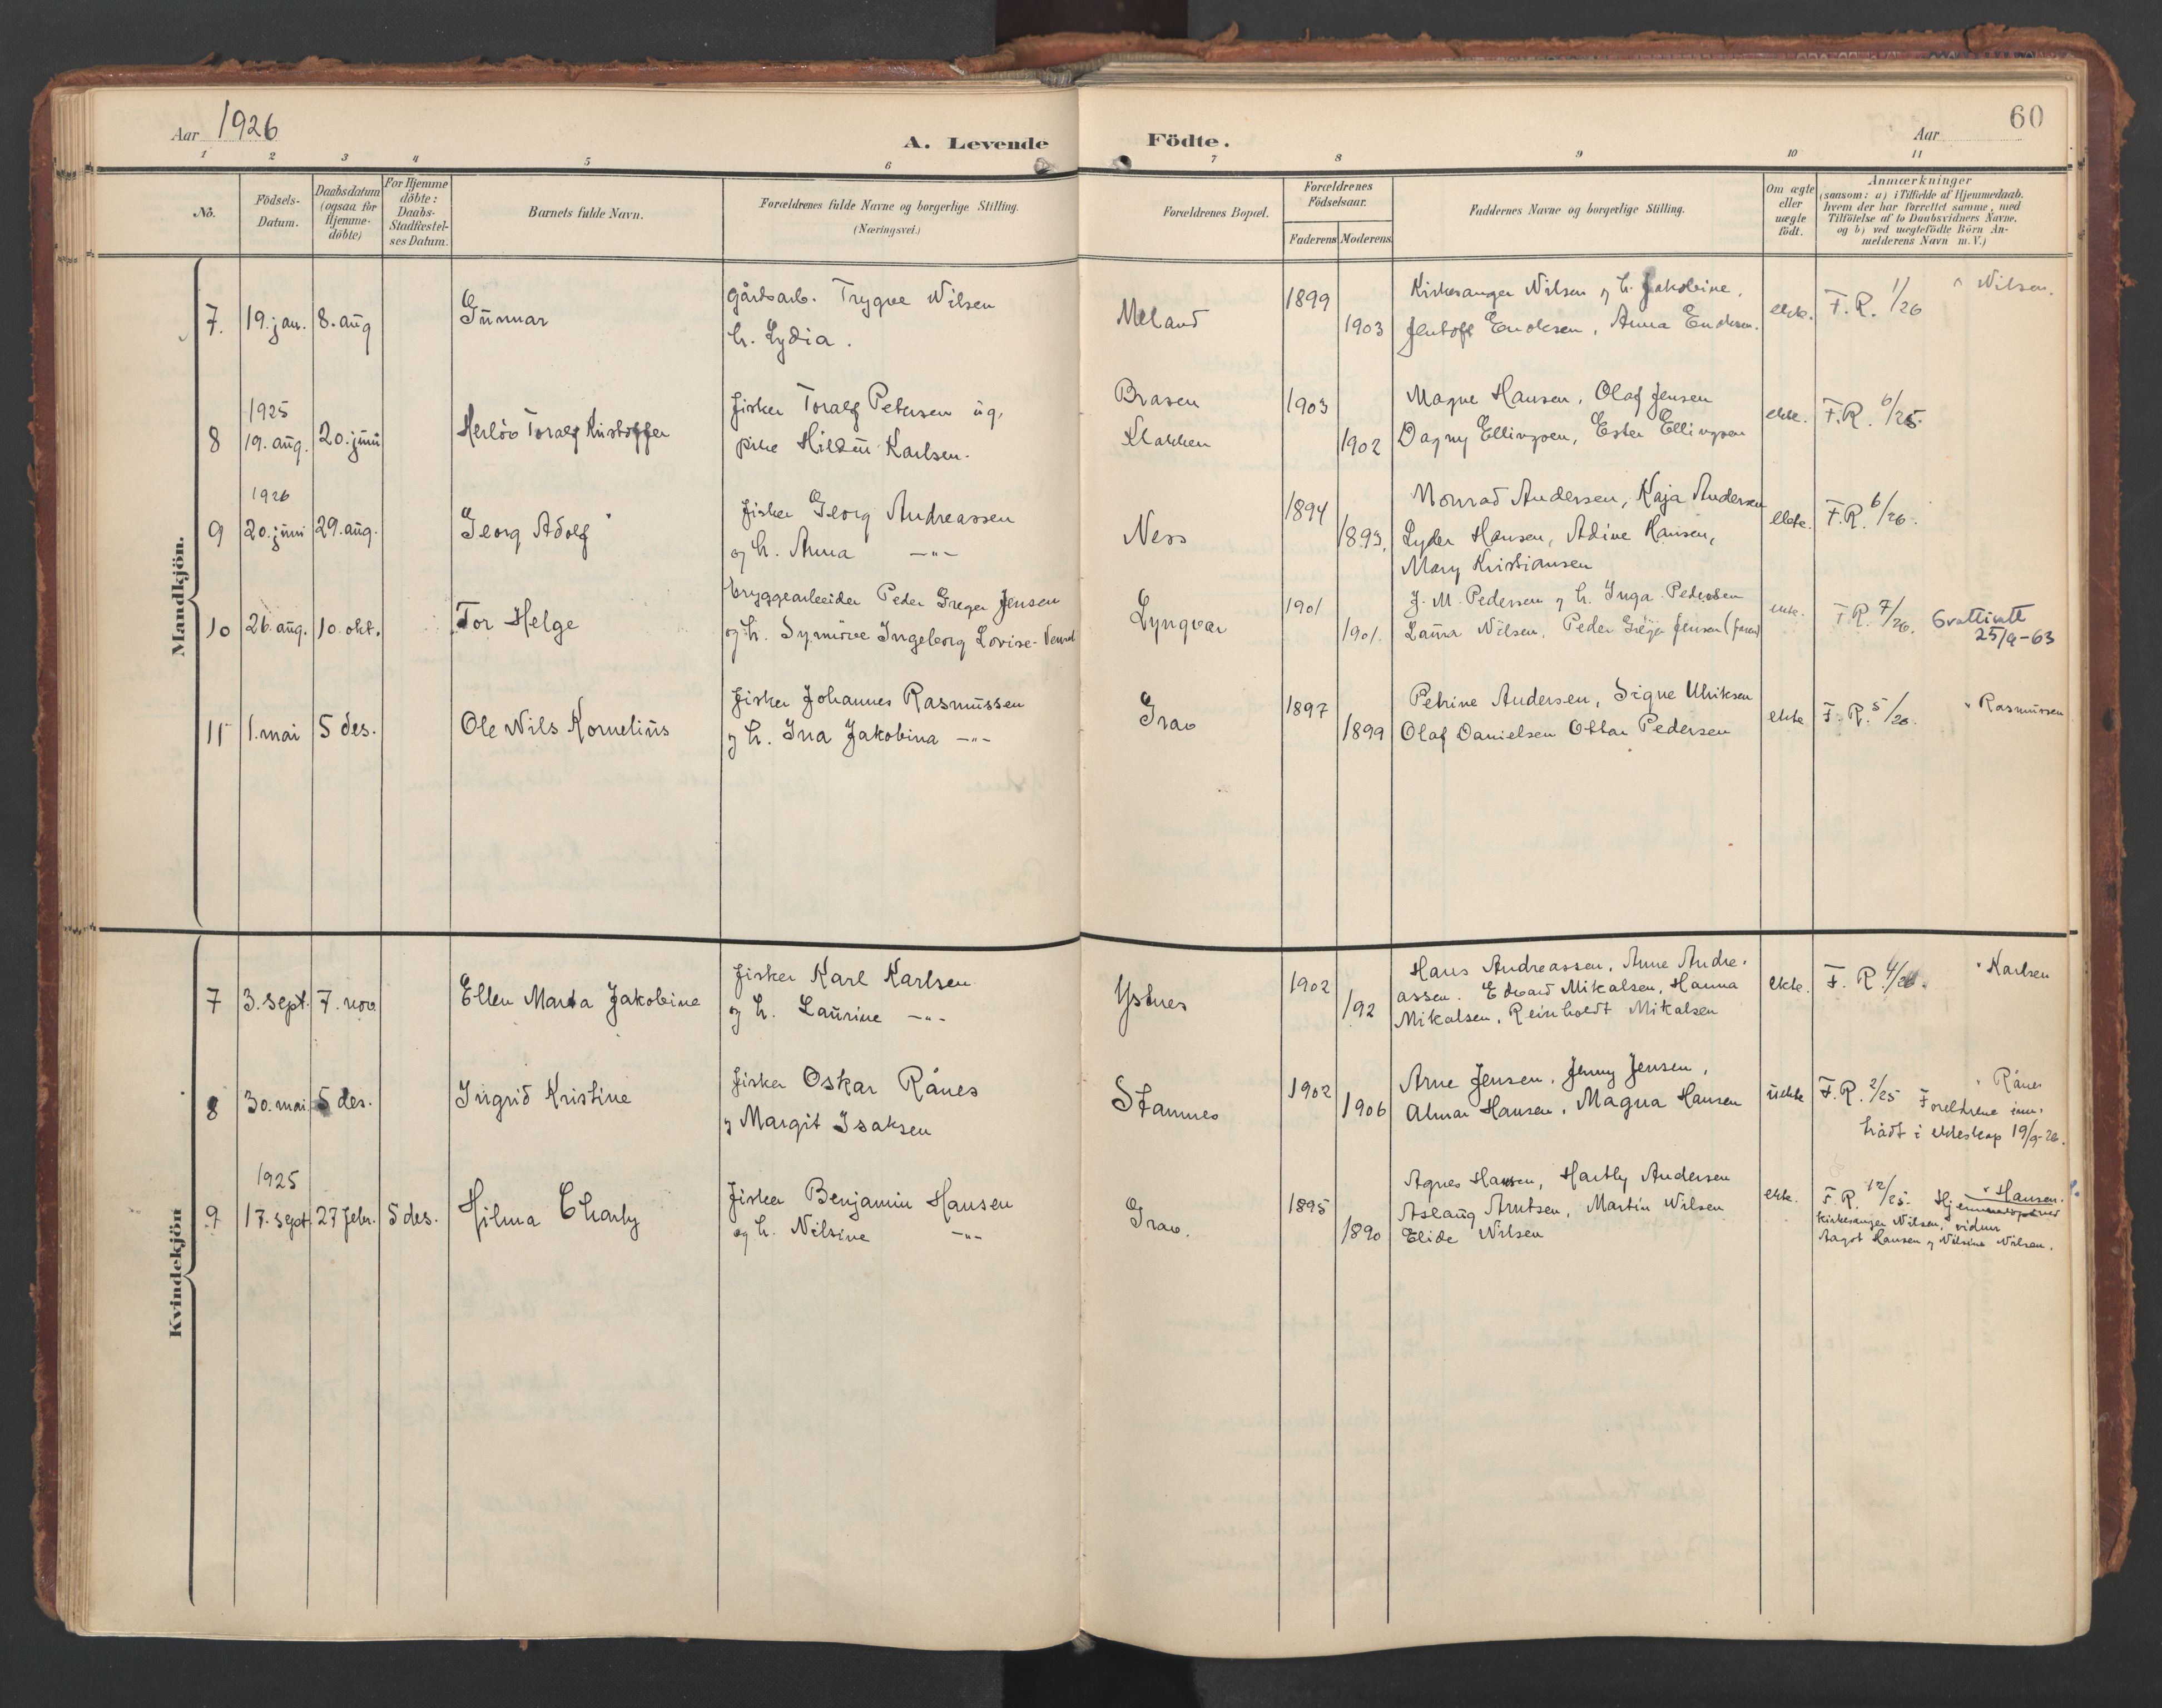 Aar 1926
A. Levende
Födte.
Aar
60
1 2 3 4 5 6 7 8 9 10 11
No.
Födsels-
Datum.
Daabsdatum
(ogsaa for
Hjemme-
döbte)
For Hjemme
döbte:
Daabs-
Stadfæstel-
ses Datum.
Barnets fulde Navn.
Forældrenes fulde Navne og borgerlige Stilling.
(Næringsvei.)
Forældrenes Bopæl.
Forældrenes
Födselsaar.
Faderens Moderens
Faddernes Navne og borgerlige Stilling.
Om ægte
eller
uægte
födt.
Anmærkninger
(saasom: a) i Tilfælde af Hjemmedaab.
hvem der har forrettet samme, med
Tilföielse af to Daabsvidners Navne,
og b) ved uægtefödte Börn An-
melderens Navn m. V.)
Mandkjön.
7. 19. jan. 8. aug Gunnar
gårdsarb. Trygve Nilsen
h. Lydia.
Meland
1899
1903
Kirkesanger Nilsen og h. Jakobine,
Jentoft Enoksen, Anna Enoksen.
ekte.
F.R. 1/26
" Nilsen.
1925
8 19. aug. 20. juni Herlöv Toralf Kristoffer
fisker Toralf Petersen ug.
pike Hildur Karlsen.
Brasen
Klakken
1903
1902
Magne Hansen, Olaf Jensen
Dagny Ellingsen, Ester Ellingsen
ekte.
F.R. 6/25.
1926
9 20. juni 29. aug. Georg Adolf
fisker Georg Andreassen
og h. Anna —"—
Ness
1894
1893.
Monrad Andersen, Kaja Andersen
Lyder Hansen, Adine Hansen,
Mary Kristiansen
ekte.
F.R. 6/26.
10 26. aug. 10. okt. Tor Helge
bryggearbeider Peder Greger Jensen
og h. Synnöve Ingeborg Lovise
Lyngvær
1901
1901.
J. M. Pedersen og h. Inga Pedersen
Laura Nilsen, Peder Greger Jensen (faren)
ekte.
F.R. 7/26.
Gvattivatt
25/9-63
11 1. mai 5 des. Ole Nils Kornelius
fisker Johannes Rasmussen
og h. Ina Jakobina —"—
Grav
1897
1899
Petrine Andersen, Signe Ulriksen
Olaf Danielsen Ottar Pedersen
ekte
F. R. 5/26.
" Rasmussen
Kvindekjön
7 3. sept. 7. nov. Ellen Marta Jakobine
fisker Karl Karlsen
og h. Laurine —"—
Ystnes
1902
1.92
Hans Andreassen, Anne Andre-
assen. Edvard Mikalsen, Hanna
Mikalsen, Reinholdt Mikalsen
ekte.
F. R. 4/26.
" Karlsen
8 30. mai 5 des. Ingrid Kristine
fisker Oskar Rånes
og Margit Isaksen
Stamnes
1902
1906
Arne Jensen, Jenny Jensen,
Almar Hansen, Magna Hansen
uekte
F.R. 2/25
" Rånes
Foreldrene inn-
trådt i ekteskap 19/9-26.
1925
9 17. sept. 27 febr. 5 des. Hilma Charly
fisker Benjamin Hansen
og h. Nilsine —"—
Grav.
1895
1890
Agnes Hansen, Hartly Andersen
Aslaug Arntsen, Martin Nilsen
Elide Nilsen
ekte.
F.R. 12/25.
" Hansen.
Hj
kirkesanger Nilsen, vidner
Aagot Hansen og Nilsine Nilsen.